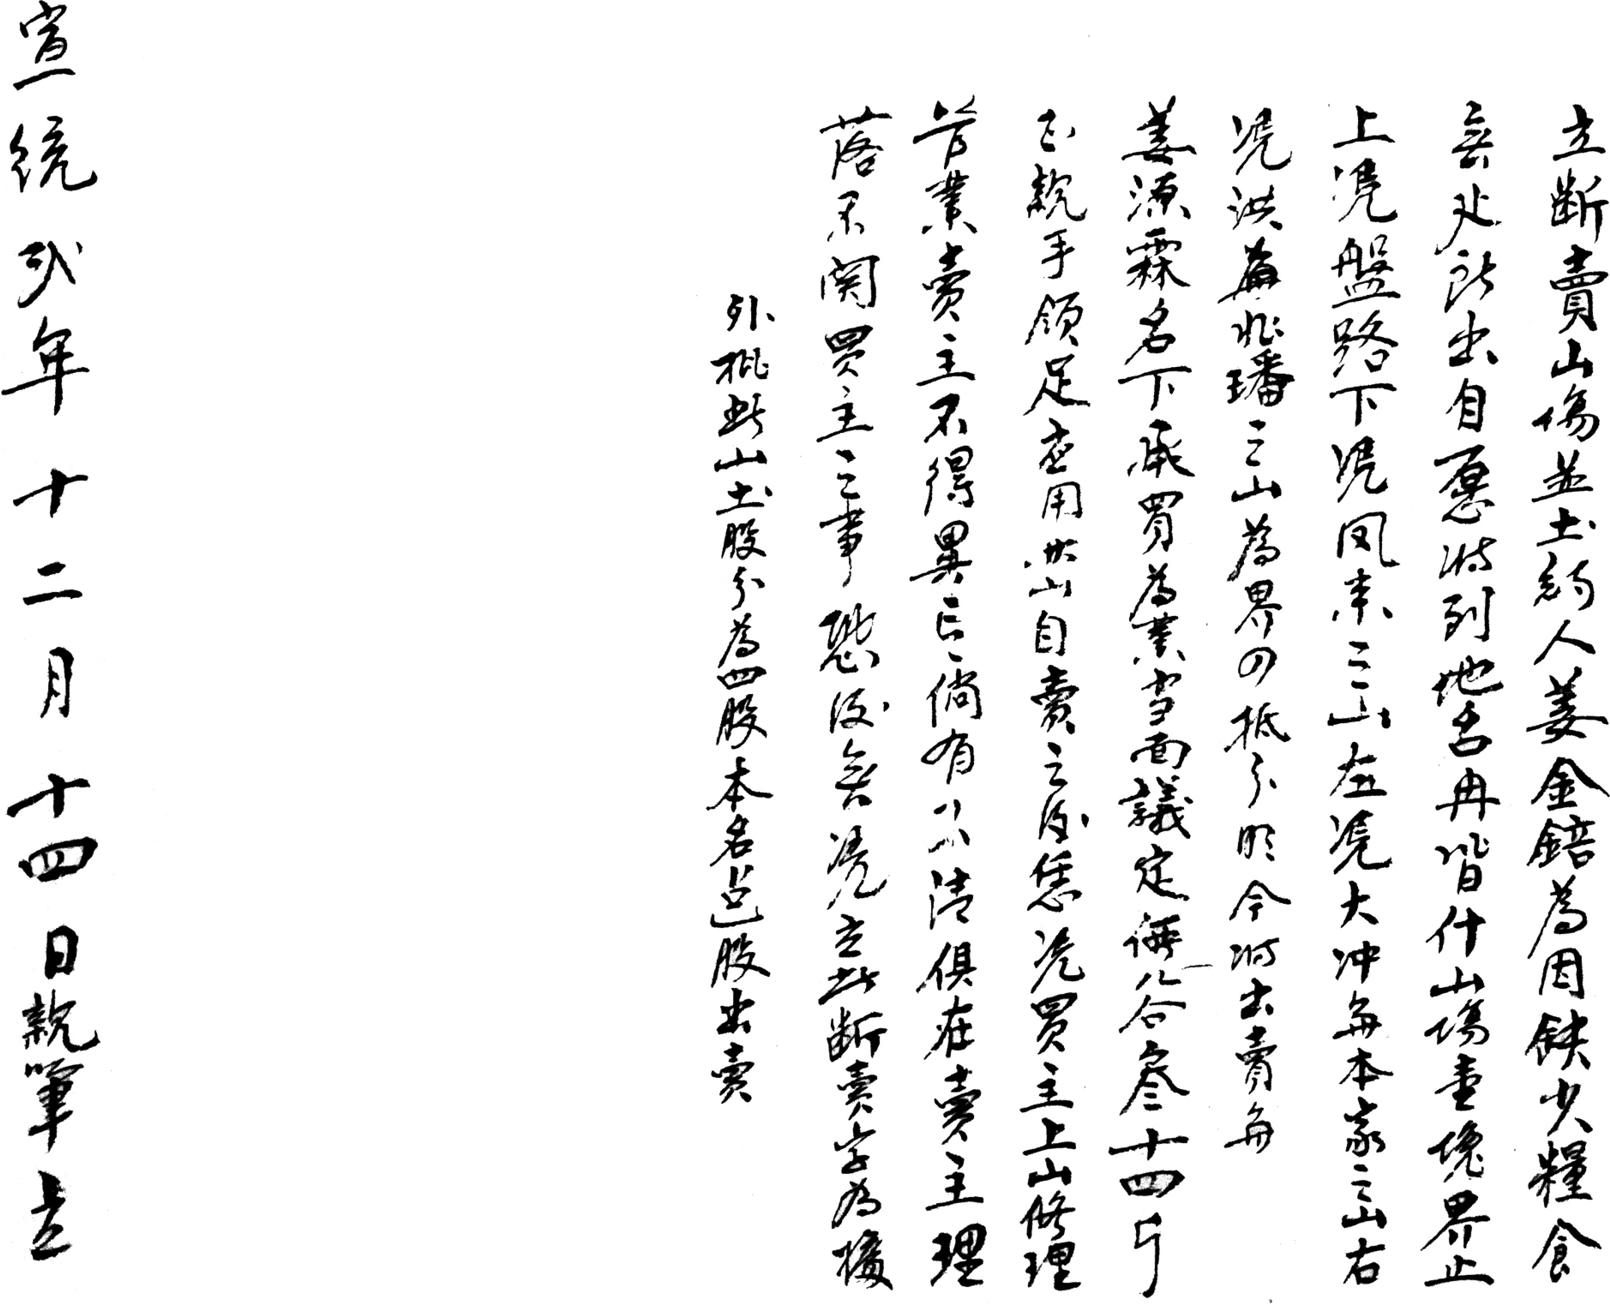 立断賣山塲並土約人姜金錇為因缺少糧食
無処所出自愿將到地名冉皆什山塲壹塊界止
上凴盤路下凴鳳來之山左凴大冲与本家之山右
凴洪兆璠之山為界四抵分明今將出賣与
姜源霖名下承買為業当面議定價谷叁十四斤
親手領足应用其山自賣之後恁凴買主上山修理
管業賣主不得異言倘有不清俱在賣主理
落不関買主之事恐後無凴立此断賣字為據
外批此山土股分為四股本名占一股出賣
宣統弍年十二月十四日親筆立